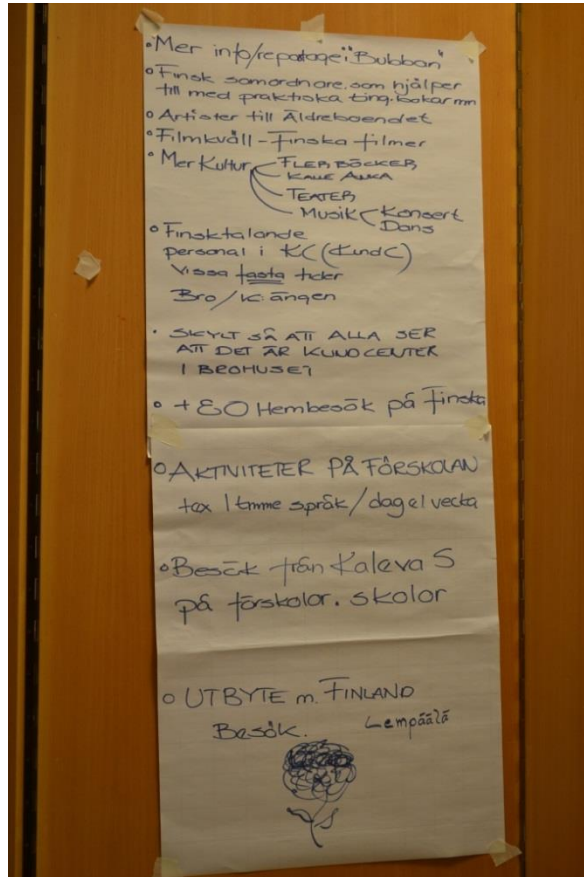 • Mer info/repotage i "Bubban"
o Finsk samordnare. som hjälper
till med praktiska ting. bokar mm
o Artister till Äldreboendet
• Filmkväll - Finska filmer
• Mer Kultur FLER BÖCKER
KALLE ANKA
TEATER
Musik Konsert
Dans
o Finsktalande
personal i KC (KundC)
Vissa fasta tider
Bro / K:ängen
• SKYLT SÅ ATT ALLA SER
ATT DET ÄR KUNDCENTER
I BROHUSET
o + 80 Hembesök på Finska
o AKTIVITETER PÅ FÖRSKOLAN
tex 1 timme språk/dag el vecka
o Besök från Kaleva S
på förskolor. skolor
o UTBYTE m. FINLAND
Besök. Lempäälä